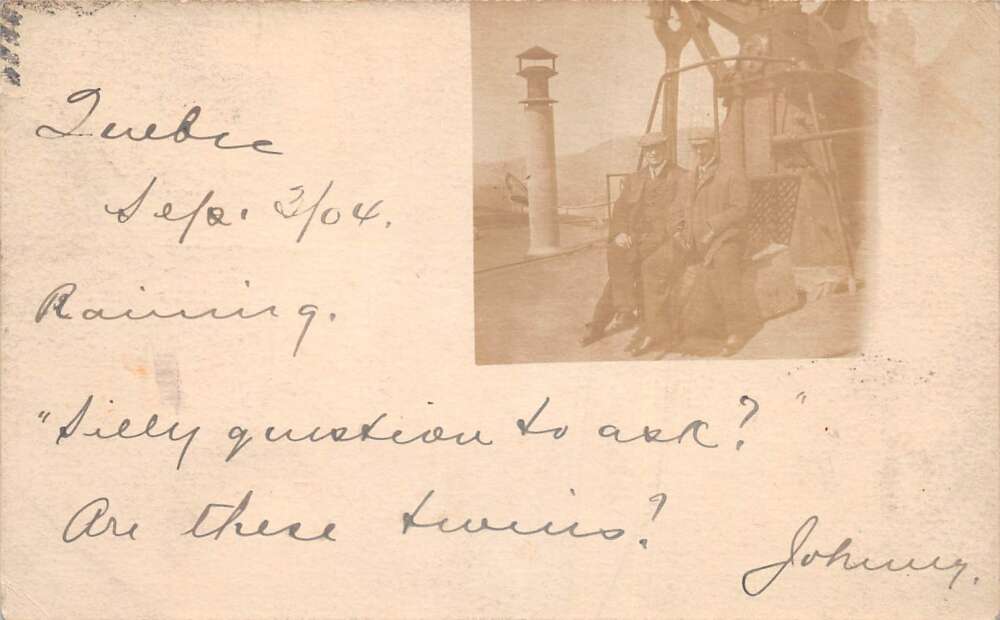 Quebec
Sep. 3/04.
Raining.
"Silly question to ask?"
Are these twins?
Johnny.